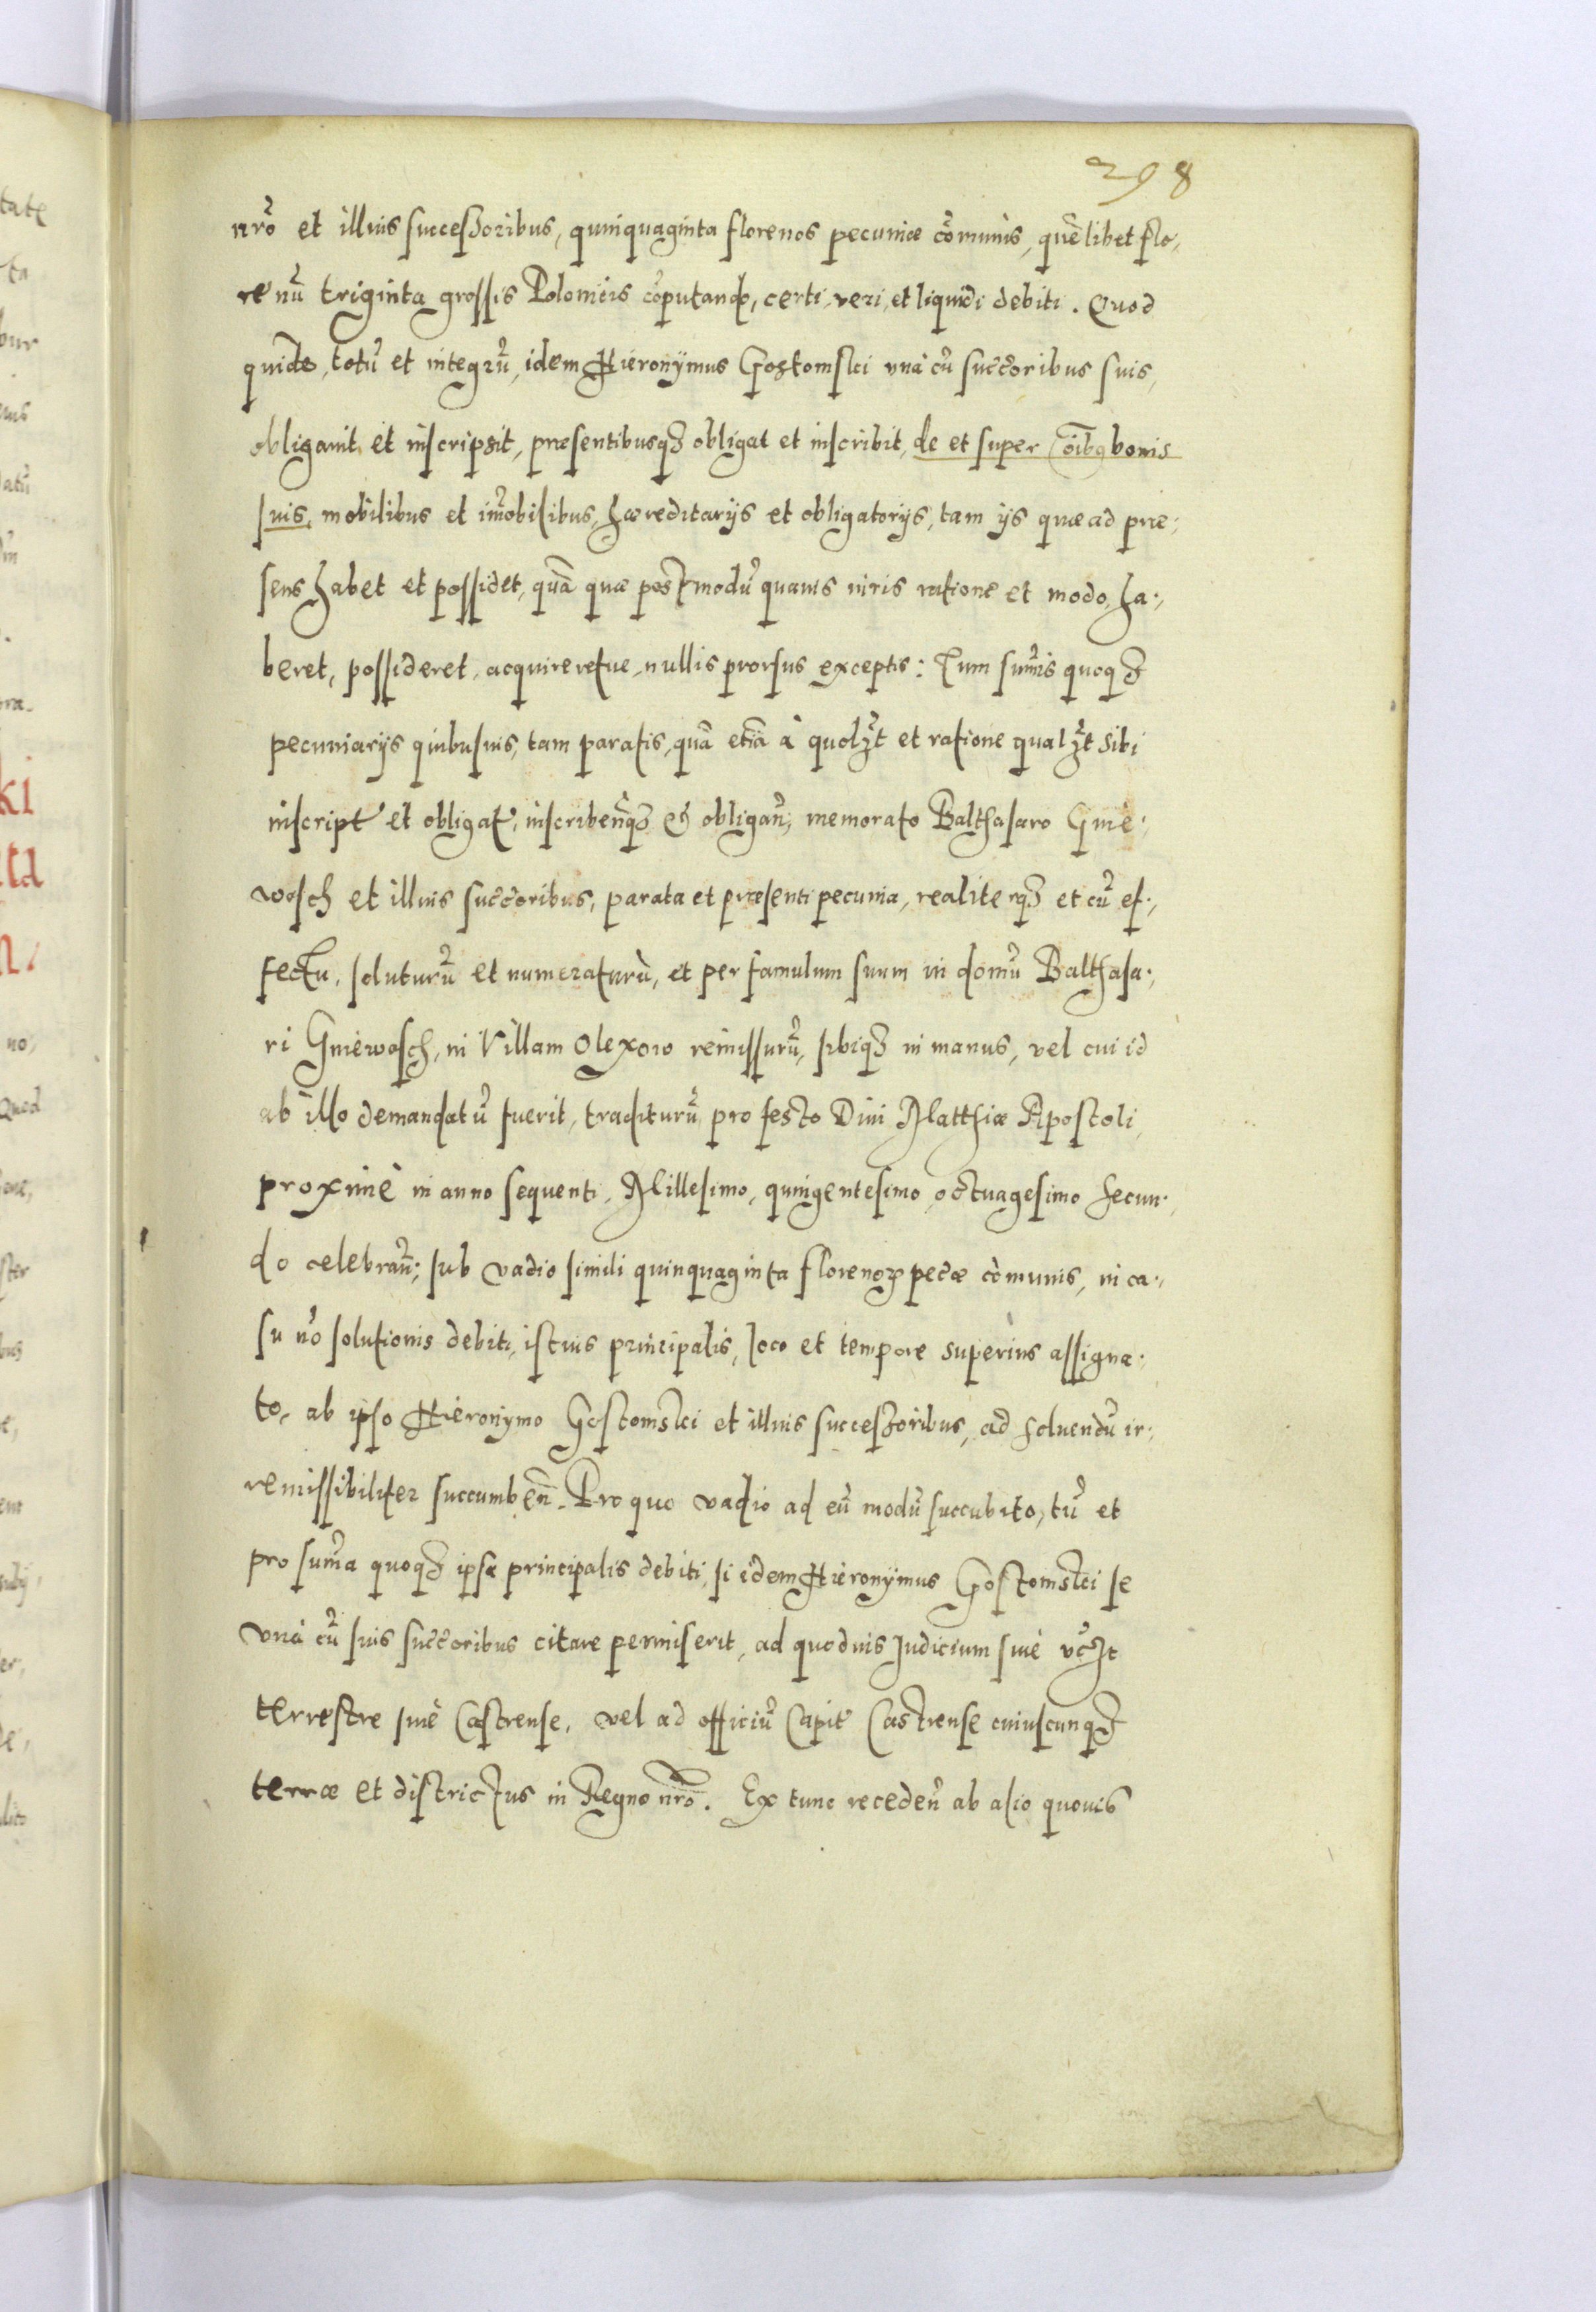 298
nrõ et illius successoribus, quinquaginta florenos pecuniæ cõmunis, quẽlibet flo-
renũ triginta grossis Polonicis cõputando, certi veri, et liquidi debiti. Quod
quide, totũ et integrũ, idem Hieronymus Gostomski unà cũ succoribus suis,
obligauit et inscripsit, præsentibusq3 obligat et inscribit, de et super oĩbq bonis
suis, mobilibus et im̃obilibus, hæreditarijs et obligatorijs, tam ijs quæ ad præ-
sens habet et possidet, quã quæ postmodũ quauis iuris ratione et modo, ha-
beret, possideret, acquireretue, nullis prorsus exceptis: Tum sum̃is quoq3
pecuniarijs quibusuis, tam paratis, quã etiã à quolз̃t et ratione qualз̃t sibi
inscript̃ et obligat̃, inscribeñq3 et obligañ, memorato Balthasaro Gnie-
wosch et illius succoribus, parata et præsenti pecunia, realiterq3 et cũ ef-
fectu, soluturũ et numeraturũ, et per famulum suum in domũ Balthasa-
ri Gniewosch, in Villam Olexow remissurũ, sibiq3 in manus, vel cui id
ab illo demandatũ fuerit, traditurũ, pro festo Diui Matthiæ Apostoli,
proximè in anno sequenti, Millesimo, quingentesimo octuagesimo secun-
do celebrañ; sub vadio simili quinquaginta florenoꝝ pecæ cõmunis, in ca-
su nõ solutionis debiti, istius principalis, loco et tempore superius assigna-
to, ab ipso Hieronymo Gostomski et illius successoribus, ad soluendũ ir-
remissibiliter succumbeñ. Pro quo vadio ad eũ modũ succubito, tũ et
pro sum̃a quoq3 ipsa principalis debiti, si idem Hieronymus Gostomski se
unà cũ suis succoribus citare permiserit, ad quoduis Judicium siuè vc̃з̃t
terrestre siuè Castrense, vel ad officiũ Capit̃ Castrense cuiuscunq3
terræ et districtus in Regno nrõ. Ex tunc recedeñ ab alio quouis